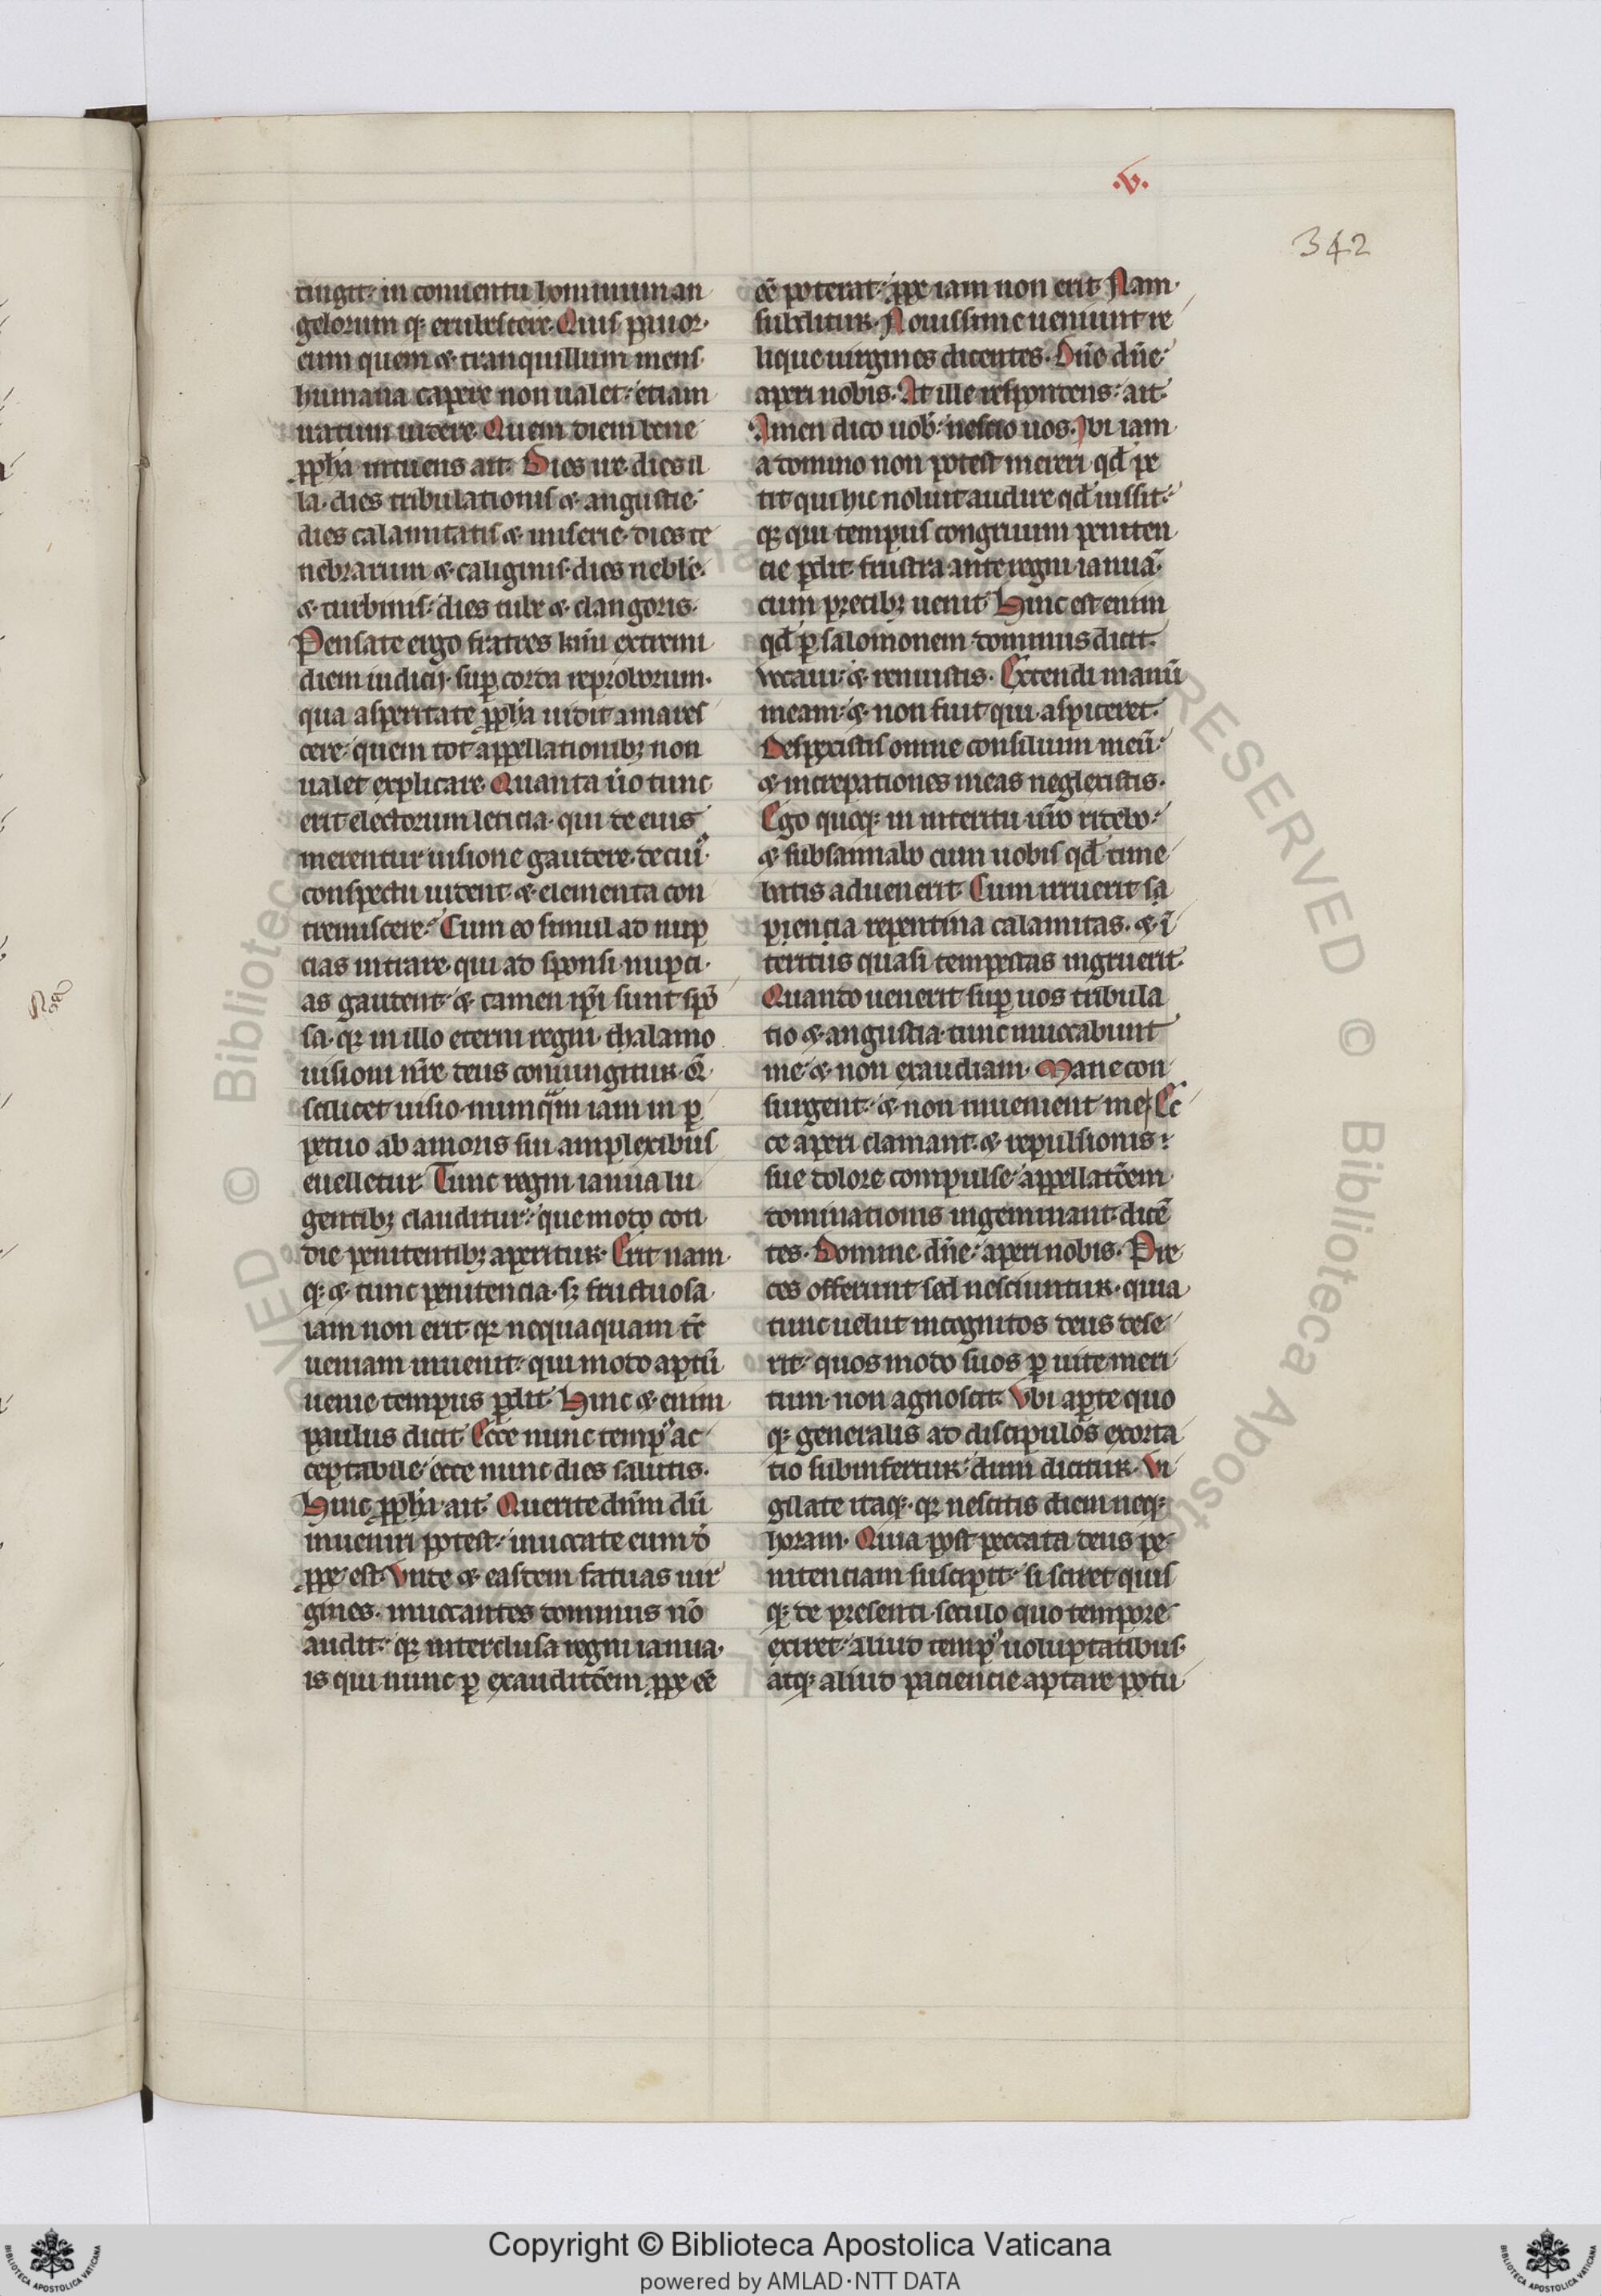 .v.
342
tingit· in conuentu hominum an
gelorum q; erubescere. Quis pauor·
eum quem & tranquillum mens
humana capere non ualet· etiam
iratum uidere. Quem diem bene
ꝓph̄a intuens ait. Dies ire dies il
la· dies tribulationis & angustie·
dies calamitatis & miserie· dies te
nebrarum & caliginis· dies neble·
& turbinis· dies tube & clangoris.
Pensate ergo fratres kmi̅ extremi
diem iudicij· suꝑ corda reproborum·
qua asperitate ꝓph̄a uidit amares
cere· quem tot appellationibꝫ non
ualet explicare. Quanta u̅o tunc
erit electorum leticia· qui de eius
merentur uisione gaudere· de cuiꝰ
conspectu uident & elementa con
tremiscere. Cum eo simul ad nup
cias intrare· qui ad sponsi nupci
as gaudent· & tamen ip̅i sunt spo̅
sa· qꝛ in illo eterni regni thalamo
uisioni nr̅e deus coniungitur. Q̅
scilicet uisio nunqua̅m iam in ꝑ
petuo ab amoris sui amplexibus
euelletur. Tunc regni ianua lu
gentibꝫ clauditur· que modo coti
die penitentibꝫ aperitur. Erit nam
q; & tunc penitencia· sꝫ fructuosa
iam non erit· qꝛ nequaquam tc̅
ueniam inuenit· qui modo aptu̅
uenie tempus ꝑdit. Hinc & enim
paulus dicit. Ecce nunc tempꝰ ac
ceptabile· ecce nunc dies salutis.
Hinc ꝓph̄a ait. Querite dn̅m du̅
inueniri potest· inuocate eum d̅
ꝓpe est. Unde & easdem fatuas uir
gines· inuocantes dominus no̅
audit· qꝛ interclusa regni ianua·
is qui nunc ꝑ exaudite̅m ꝓpe ee̅
ee̅ poterat· ꝓpe iam non erit. Nam
subditur. Nouissime ueniunt re
lique uirgines dicentes. Dn̅e dn̅e·
aperi nobis. At ille respondens· ait.
Amen dico uob̅· nescio uos. Ibi iam
a domino non potest mereri qd̅ pe
tit qui hic noluit audire qd̅ iussit·
q; qui tempus congruum peniten
cie ꝑdit· frustra ante regni ianua̅
cum precibꝫ uenit. Hinc est enim
qd̅ ꝑ salomonem dominus dicit.
Vocaui· & renuistis. Extendi manu̅
meam· & non fuit qui aspiceret.
Despexistis omne consilium meu̅·
& increpationes meas neglexistis.
Ego quoq; in interitu ur̅o ridebo·
& subsannabo cum uobis qd̅ time
batis aduenerit. Cum irruerit sa
piencia repentina calamitas. & i̅
teritus quasi tempestas ingruerit.
Quando uenerit suꝑ uos tribula
tio & angustia· tunc inuocabunt
me· & non exaudiam. Mane con
surgent· & non inuenient me. Ec
ce aperi clamant· & repulsionis
sue dolore compulse· appellatc̅em
dominationis ingeminant· dice̅
tes. Domine dn̅e· aperi nobis. Pre
ces offerunt sed nesciuntur· quia
tunc uelut incognitos deus dese
rit· quos modo suos ꝑ uite meri
tum non agnoscit. Vbi apte quo
q; generalis ad discipulos exorta
tio subinfertur· dum dicitur. Vi
gilate itaq;· qꝛ nescitis diem neq;
horam. Quia post peccata deus pe
nitenciam suscipit· si sciret quis
q; de presenti seculo quo tempore
exiret· aliud tempꝰ uoluptatibus
atq; aliud paciencie aptare potu
© Biblioteca Apostolica Vaticana
RESERVED © Biblioteca Aposto
Copyright © Biblioteca Apostolica Vaticana
powered by AMLAD·NTT DATA
BIBLIOTECA APOSTOLICA VATICANA
BIBLIOTECA APOSTOLICA VATICANA